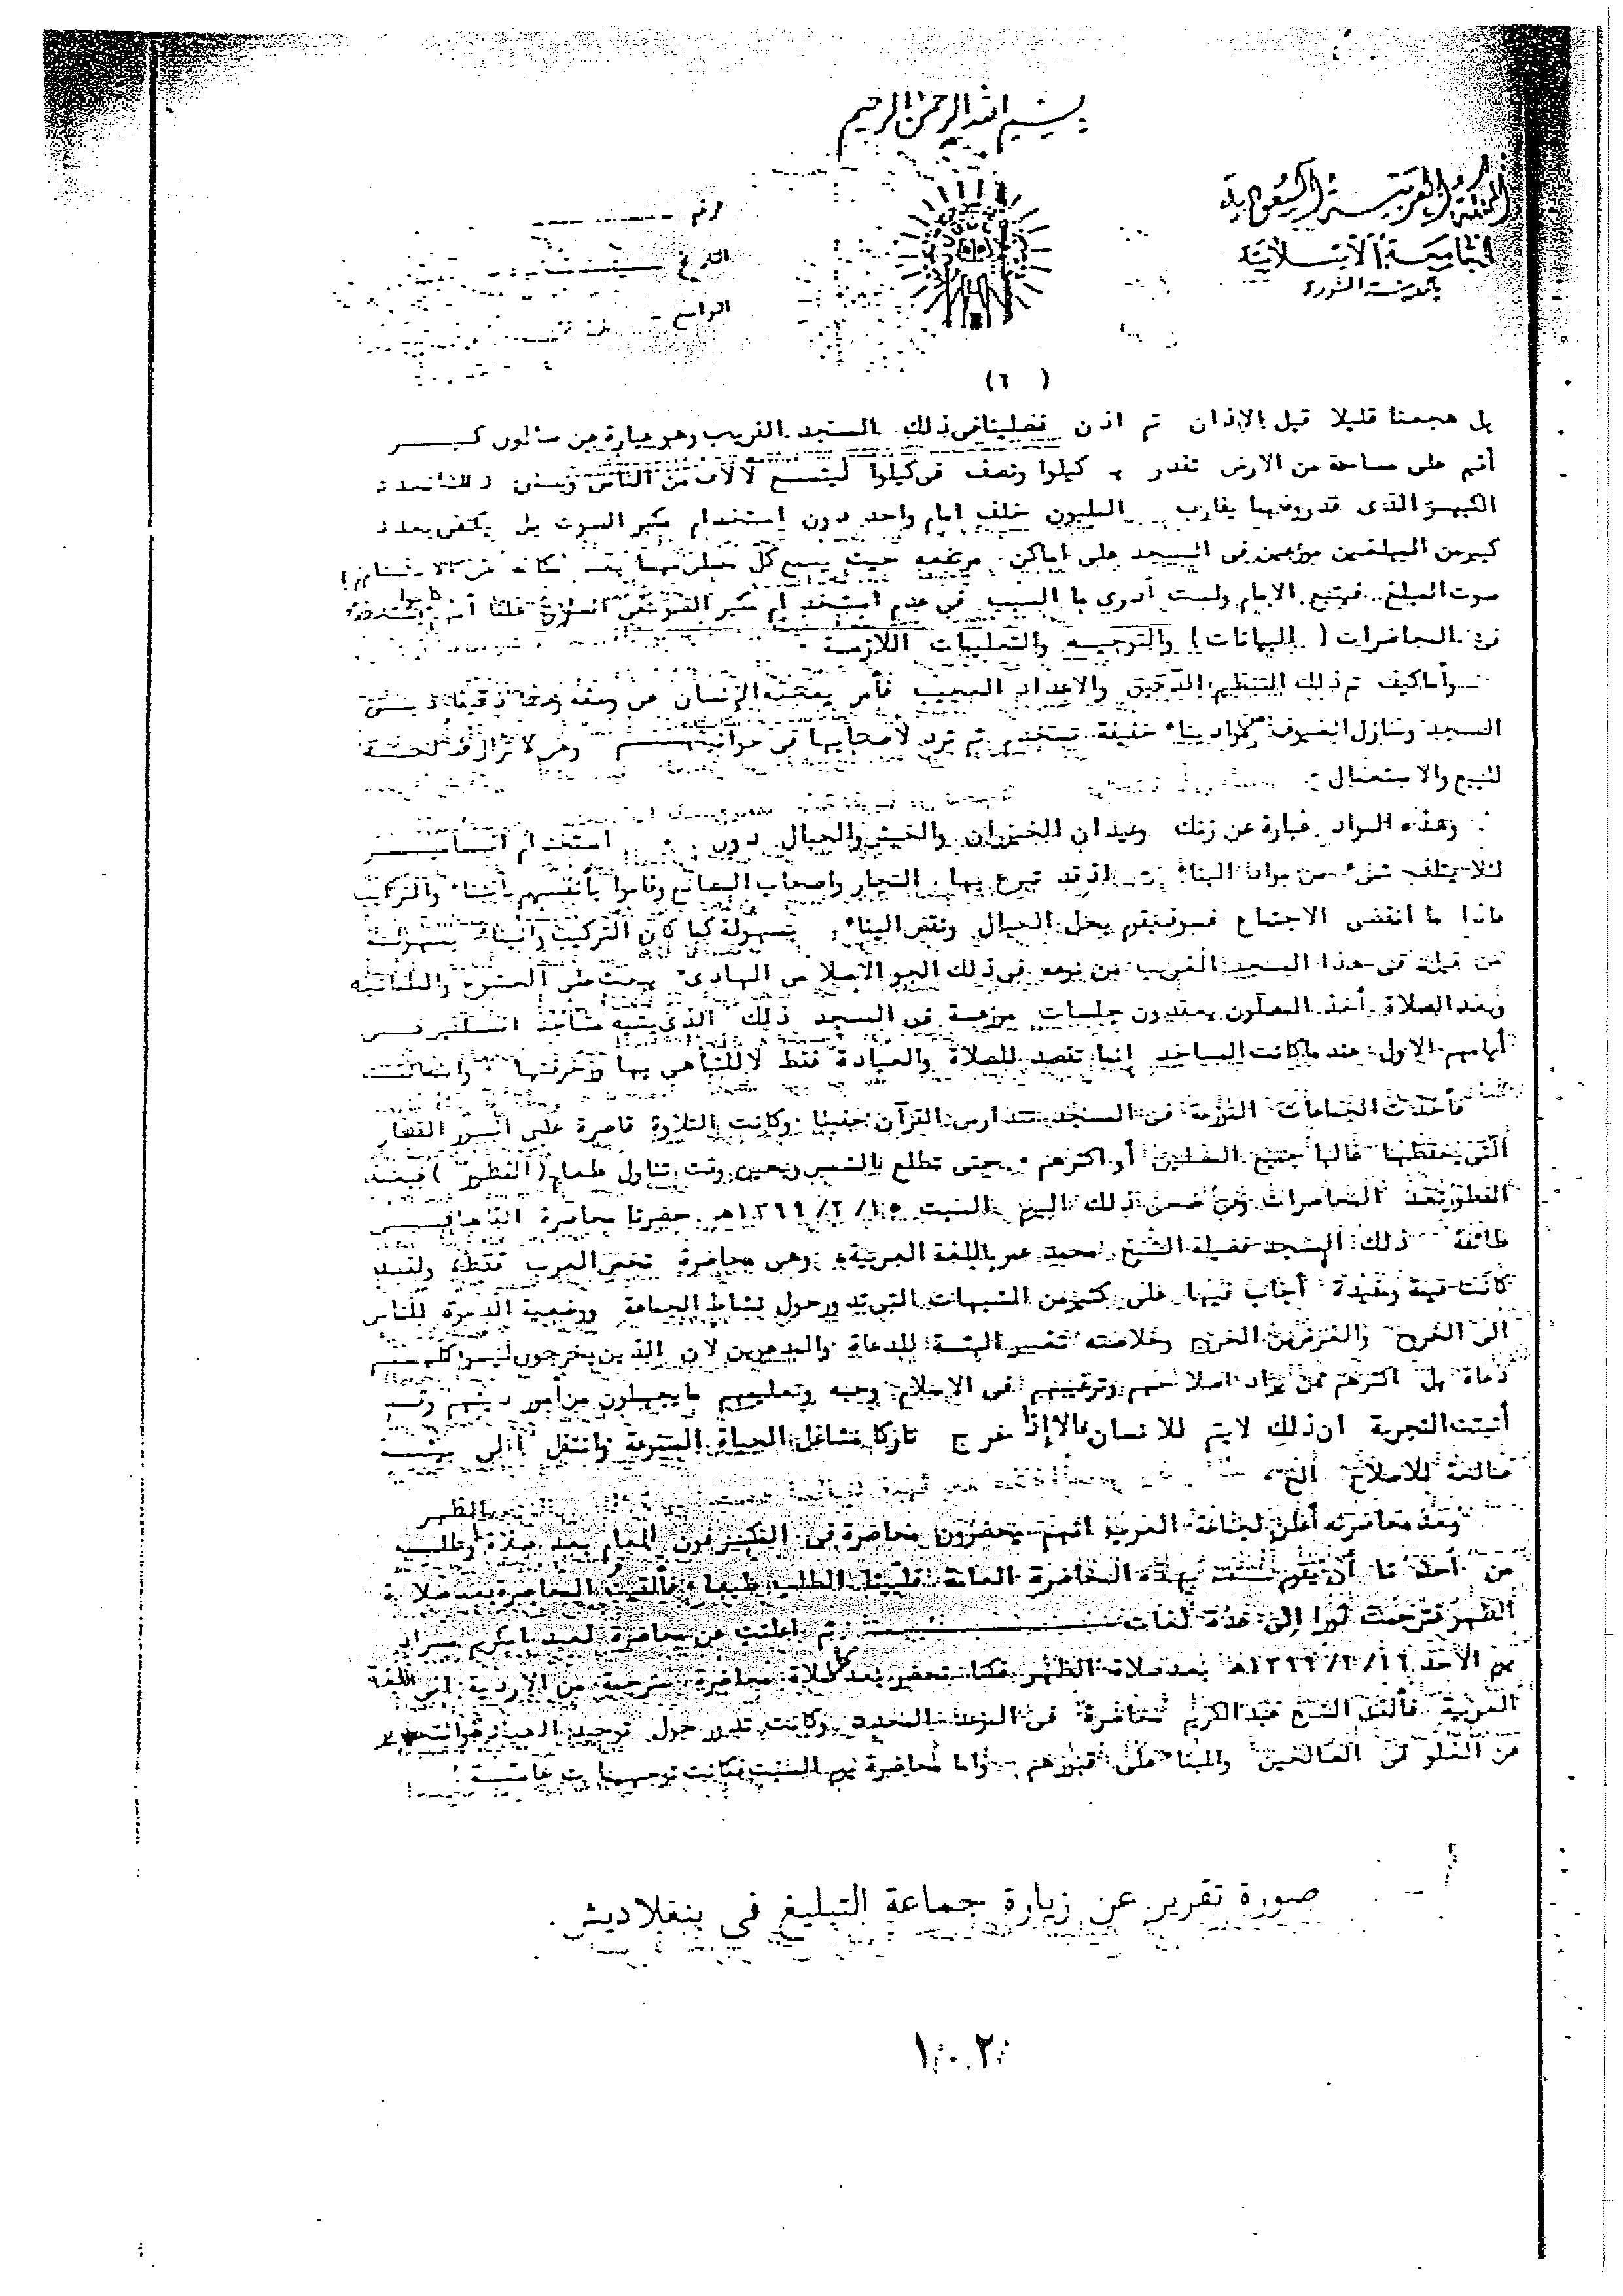 بسم الله الرحمن الرحيم
المملكة العربية السعودية
الجامعة الإسلامية
بالمدينة المنورة
الرقم
التاريخ
(٢)
بل هجعنا قليلا قبل الاذان ثم اذن فصلينا في ذلك المسجد الغريب وهو عبارة عن صالون كبير
أقيم على مساحة من الارض تقدر بـ كيلوا ونصف في كيلوا ليتسع لآلاف من الناس
الذي قدروه بما يقارب المليون خلف امام واحد دون إستخدام مكبر الصوت بل يكتفى بعدد
كبير من المبلغين موزعين في المسجد على اماكن مرتفعة حيث يسمع كل
صوت المبلغ فيتبع الامام ولست أدرى ما السبب في عدم استخدام مكبر الصوت في الصلاة علما أنهم كانوا
في المحاضرات (البيانات) والتوجيه والتعليمات اللازمة .
وأما كيف تم ذلك التنظيم الدقيق والاعداد العجيب فأمر يعجز الإنسان عن وصفه وصفا دقيقا
المسجد ومنازل الضيوف من مواد بناء خفيفة تستخدم ثم ترد لأصحابها في حوانيتهم وهي لا تزال صالحة
للبيع والاستعمال .
وهذه المواد عبارة عن زنك وعيدان الخيزران والخيش والحبال دون استخدام المسامير
لئلا يتلف شيء من مواد البناء اذ قد تبرع بها التجار واصحاب المصانع وقاموا بأنفسهم بالبناء والتركيب
فاذا ما انقضى الاجتماع فسوف يتم بحل الحبال ونقض البناء بسهولة كما كان التركيب والبناء بسهولة
في هذا المسجد الغريب من نوعه في ذلك الجو الاسلامى الهادىء يبعث على الخشوع والطمأنينة
وبعد الصلاة أخذ المصلون يعقدون جلسات موزعة في المسجد ذلك الذى يشبه مساجد المسلمين في
أيامهم الاول عندما كانت المساجد إنما تقصد للصلاة والعبادة فقط لا للتباهى بها وزخرفتها
فأخذت الجماعات الموزعة في المسجد تتدارس القرآن حفظا وكانت التلاوة قاصرة على السور القصار
التى يحفظها غالبا جميع المصلين أو اكثرهم . حتى تطلع الشمس ويحين وقت تناول طعام (الفطور) فبعد
الفطور تعقد المحاضرات وفي ضحى ذلك اليوم السبت ١٥/٢/١٣٩٩هـ حضرنا محاضرة القاها في
ذلك المسجد فضيلة الشيخ محمد عمر باللغة العربية وهي محاضرة تخص العرب فقط، ولقد
كانت قيمة ومفيدة أجاب فيها على كثير من الشبهات التى تدور حول نشاط الجماعة ووضعية الدعوة للناس
الى الخروج والغرض من الخروج وخلاصته تغيير البيئة للدعاة والمدعوين لان الذين يخرجون ليسوا كلهم
دعاة بل اكثرهم ممن يراد اصلاحهم وترغيبهم في الإسلام وحبه وتعليمهم ما يجهلون من أمور دينهم وقد
أثبتت التجربة ان ذلك لا يتم للانسان الا إذا خرج تاركا مشاغل الحياة المتنوعة وانتقل الى بيئة
صالحة للاصلاح الخ .
وبعد محاضرته أعلن لجماعة العرب انهم يحضرون محاضرة في الميكرفون العام بعد صلاة الظهر وطلب
من أحدنا أن يقوم بهذه المحاضرة العامة فلبينا الطلب طبعا فألقيت المحاضرة بعد صلاة
الظهر فترجمت فورا إلى عدة لغات ثم اعلنت عن محاضرة لعبد الكريم مراد
يوم الأحد ١٦/٢/١٣٩٩هـ بعد صلاة الظهر فكنا نحضر بعد كل صلاة محاضرة مترجمة من الاردية الى اللغة
العربية فألقى الشيخ عبد الكريم محاضرة في الموعد المحدد وكانت تدور حول توحيد العبادة والتحذير
من الغلو في الصالحين والبناء على قبورهم . وأما محاضرة يوم السبت فكانت توجيهات عامة .
صورة تقرير عن زيارة جماعة التبليغ في بنغلاديش.
١٠٠٢